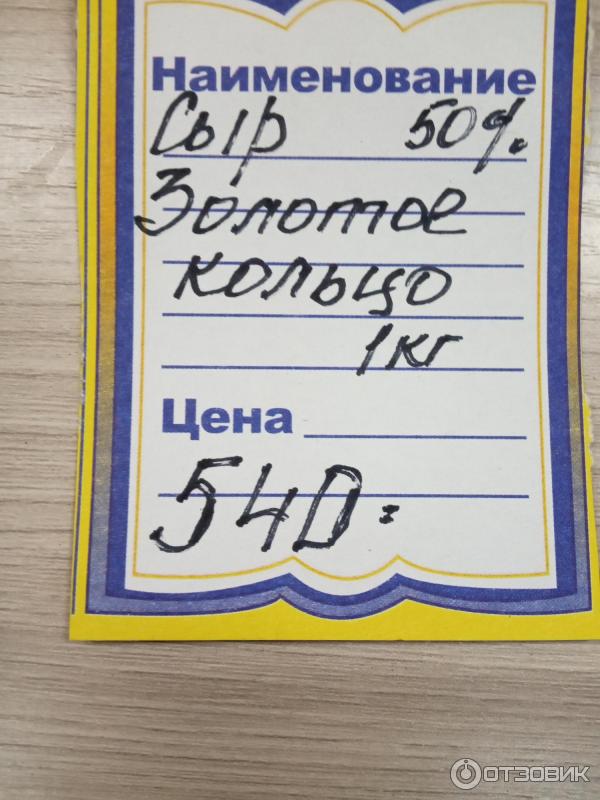 Наименование
Сыр 50%.
Золотое
кольцо
1кг
Цена
540=
ОТЗОВИК